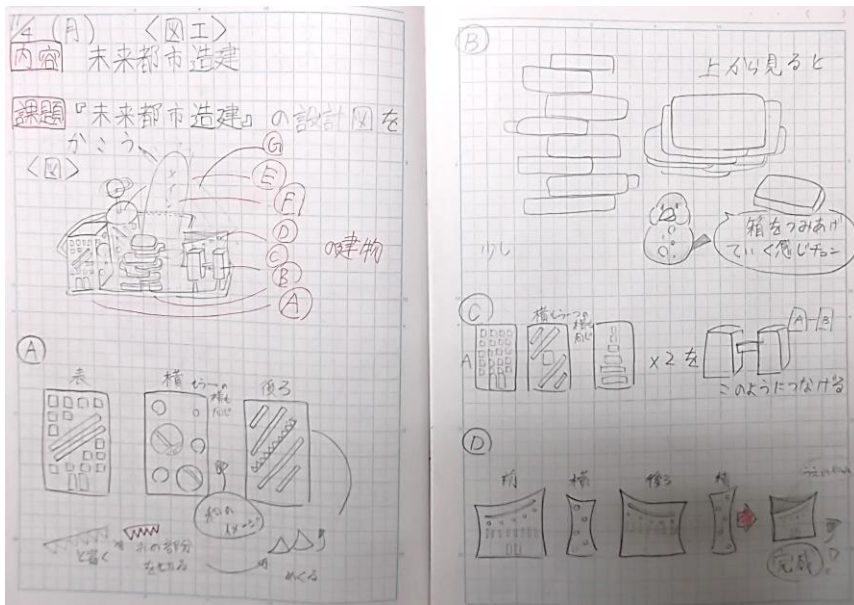 11/4 (月) 〈図工〉
内容 未来都市造建
課題『未来都市造建』の設計図を
かこう。
〈図〉
G
E
F
D
C
B
A
の建物
A
表
横
もう一つの
横も
同じ
後ろ
和の
イメージ
と書く
の部分
めくる
B
上から見ると
箱をつみあげ
ていく感じチョン
少し
C
A
横もう一つの
横も
同じ
×2を
A-B
このようにつなげる
D
前
横
後ろ
横
完成